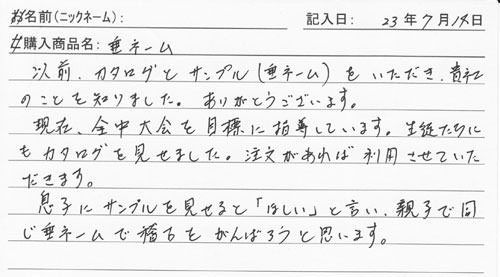 お名前(ニックネーム): 記入日: 23年7月18日
ご購入商品名: 垂ネーム
以前、カタログとサンプル(垂ネーム)をいただき、貴社
のことを知りました。ありがとうございます。
現在、全中大会を目標に指導しています。生徒たちに
もカタログを見せました。注文があれば利用させていた
だきます。
息子にサンプルを見せると「ほしい」と言い、親子で同
じ垂ネームで稽古をがんばろうと思います。